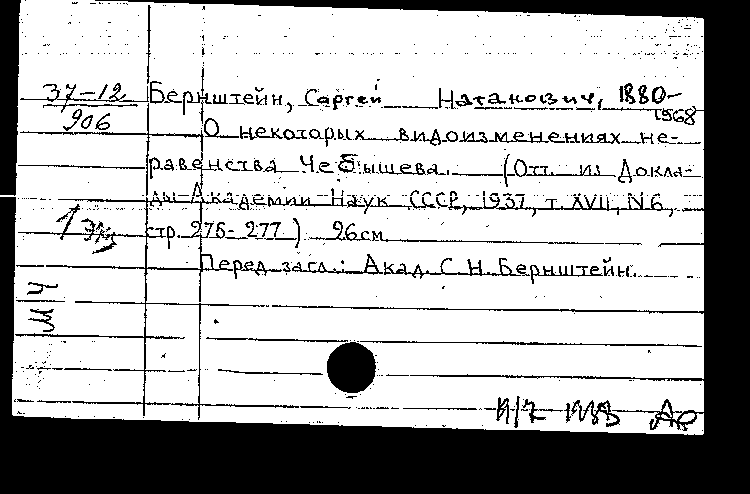 37-12
906
Бернштейн, Сергей Натанович, 1880-
1968
О некоторых видоизменениях не-
равенства Чебышева. (Отт. из Докла-
ды Академии Наук СССР, 1937, т. XVII, N6,
1 экз
стр. 275-277) 26см.
Перед загл.: Акад. С. Н. Бернштейн.
М Ч